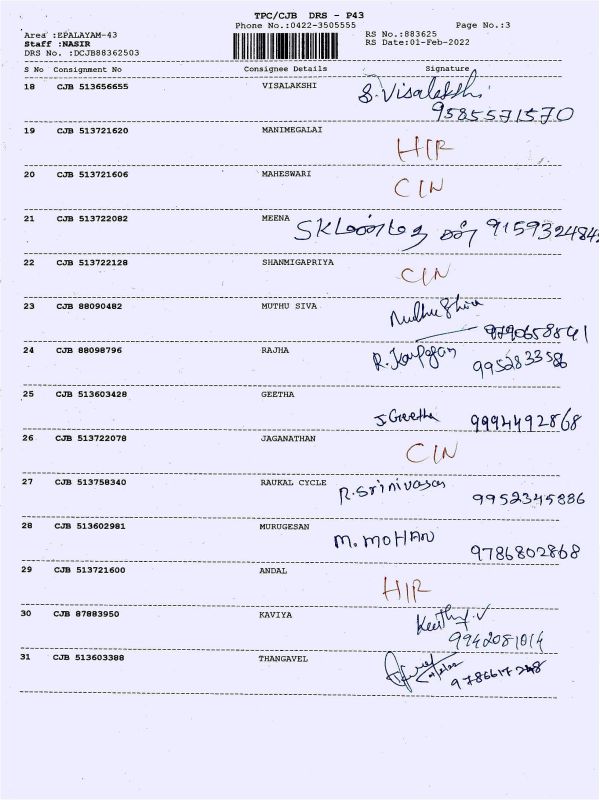 TPC/CJB DRS - P43
Phone No.:0422-3505555 Page No.:3
Area :EPALAYAM-43 RS No.:883625
Staff :NASIR RS Date:01-Feb-2022
DRS No. :DCJB88362503
S No Consignment No Consignee Details Signature
18 CJB 513656655 VISALAKSHI S. Visalakshi
9585571570
19 CJB 513721620 MANIMEGALAI HIR
20 CJB 513721606 MAHESWARI CIN
21 CJB 513722082 MEENA
22 CJB 513722128 SHANMIGAPRIYA CIN
23 CJB 88090482 MUTHU SIVA
24 CJB 88098796 RAJHA
25 CJB 513603428 GEETHA J Geetha 9994492868
26 CJB 513722078 JAGANATHAN CIN
27 CJB 513758340 RAUKAL CYCLE R. Srinivasan 9952345886
28 CJB 513602981 MURUGESAN M. MOHAN 9786802868
29 CJB 513721600 ANDAL HIR
30 CJB 87883950 KAVIYA
31 CJB 513603388 THANGAVEL